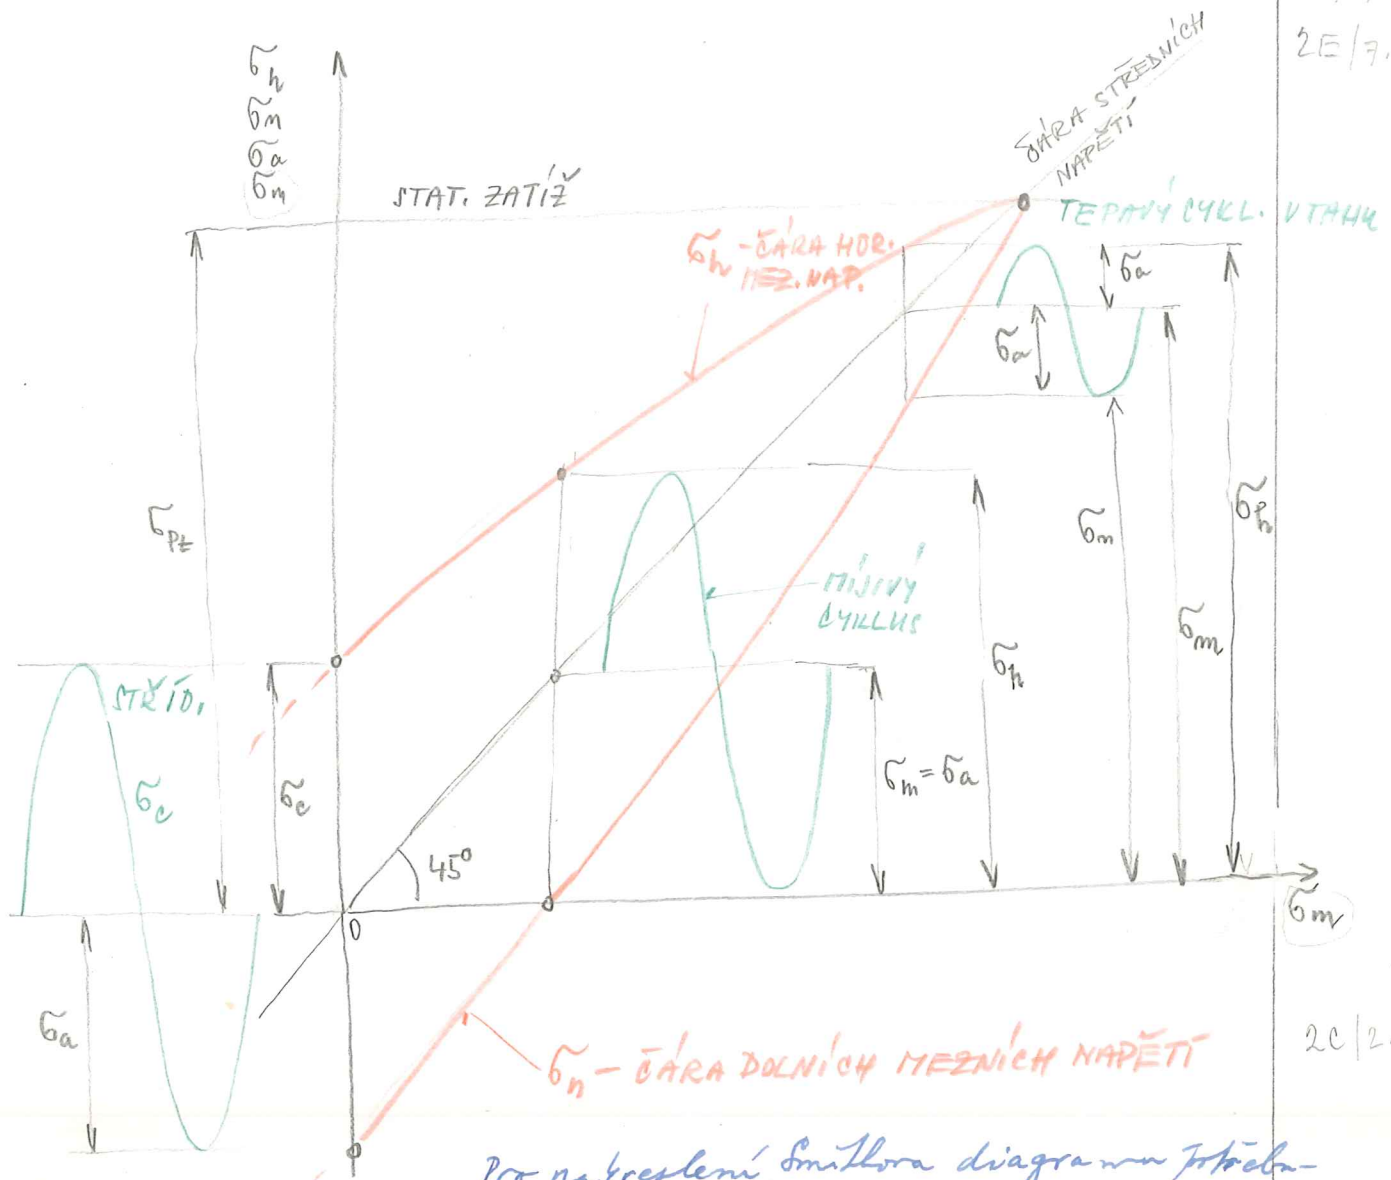 σh
σn
σa
σm
2E/7.
ČÁRA STŘEDNÍCH
NAPĚTÍ
STAT. ZATÍŽ
TEPAVÝ CYKL. V TAHU
σh - ČÁRA HOR.
MEZ. NAP.
σa
σa
σPt
σn
σh
MÍJIVÝ
CYKLUS
σm
σh
STŘÍD.
σc
σc
σm = σa
45°
0
σm
σa
2C/2.
σn - ČÁRA DOLNÍCH MEZNÍCH NAPĚTÍ
Pro nakreslení Smithova diagramu potřebu-